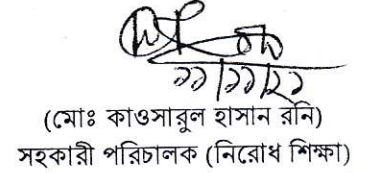 ১১/১১/২১
(মোঃ কাওসারুল হাসান রনি)
সহকারী পরিচালক (নিরোধ শিক্ষা)